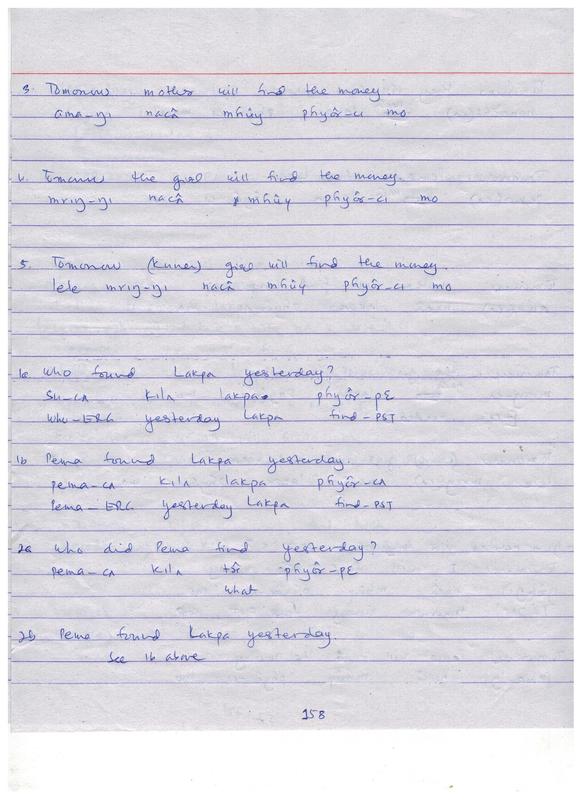 3. Tomorrow mother will find the money.
ama-ŋɪ nacâ mɦûy pɦyôr-cɪ mo
4. Tomorrow the girl will find the money.
mrɪŋ-ŋɪ nacâ mɦûy pɦyôr-cɪ mo
5. Tomorrow girl will find the money.
lele mrɪŋ-ŋɪ nacâ mɦûy pɦyôr-cɪ mo
1a Who found Lakpa yesterday?
su-cʌ kilʌ lakpa pɦyôr-pɛ
who-ERG yesterday Lakpa find-PST
1b Pema found Lakpa yesterday.
pema-cʌ kilʌ lakpa pɦyôr-cʌ
Pema-ERG yesterday Lakpa find-PST
2a Who did Pema find yesterday?
pema-cʌ kilʌ pɦyôr-pɛ
what
2b Pema found Lakpa yesterday.
See 1b above
158